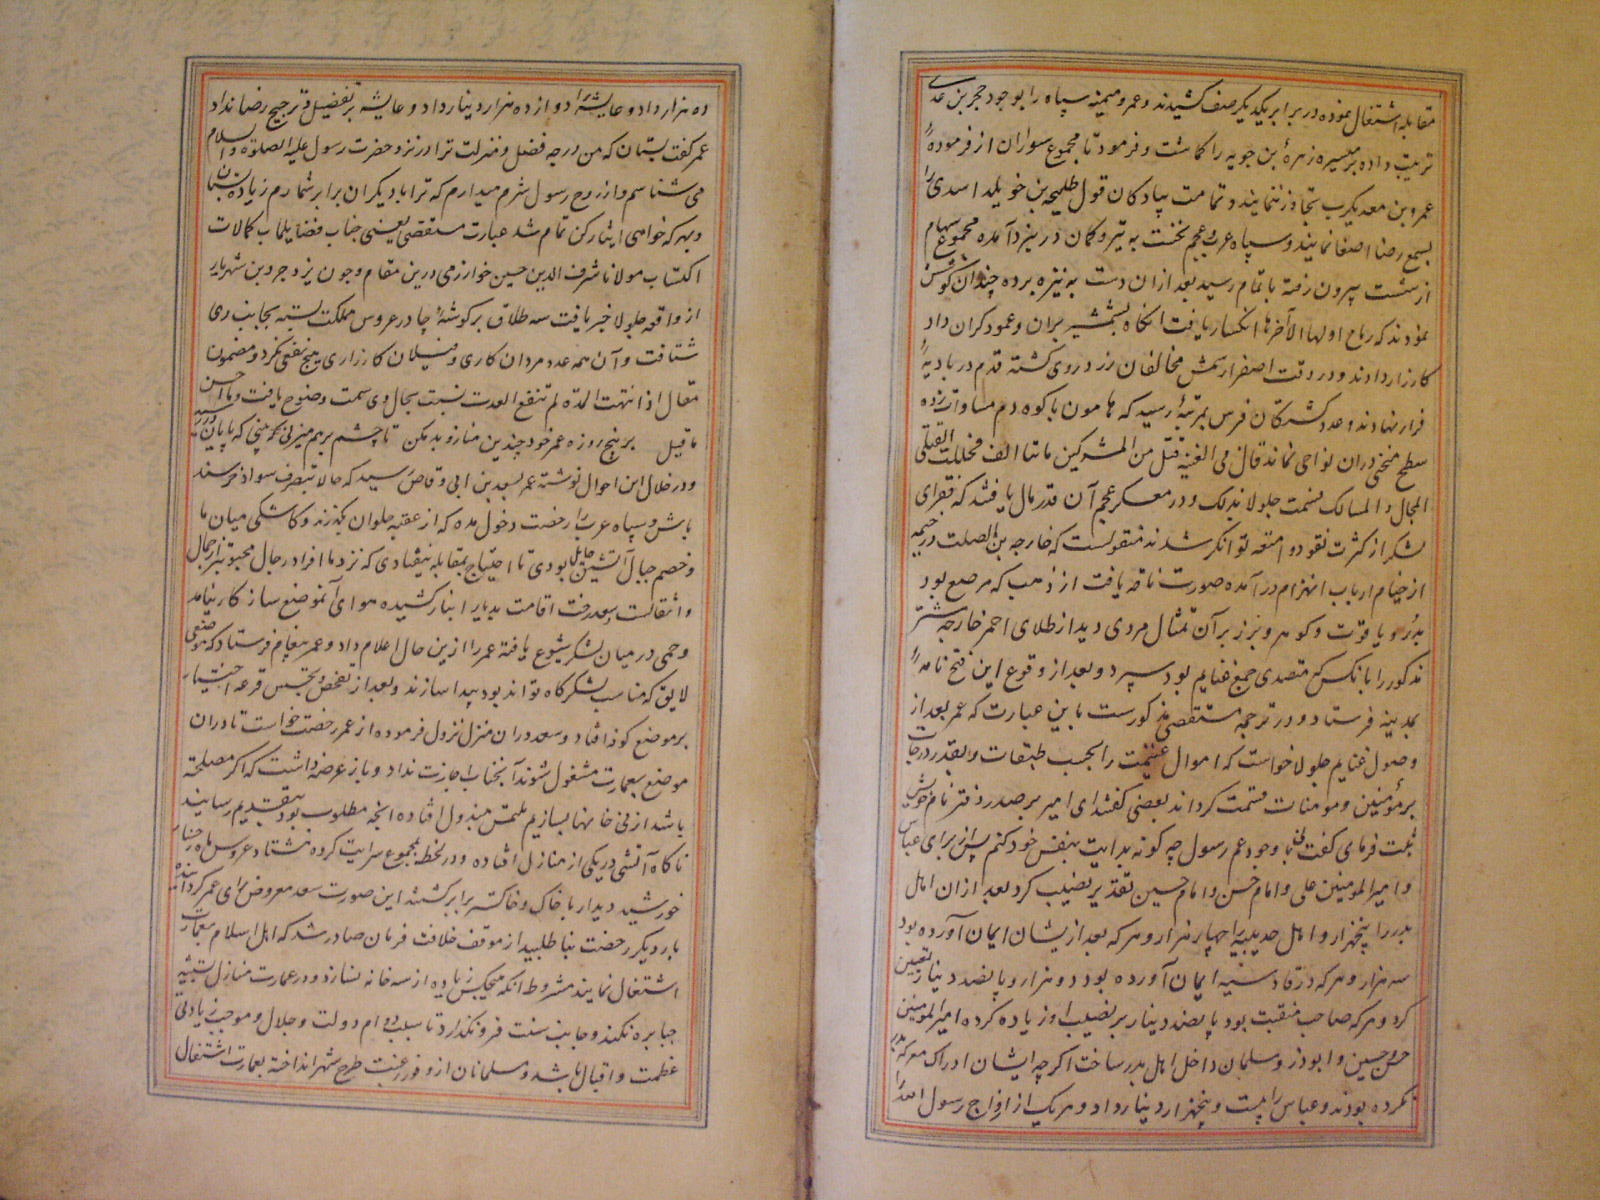 مقابله اشتغال نموده در برابر یکدیگر صف کشیدند و عمرو میمنه سپاه را بوجود حجر بن عدی
ترتیب داده بر میسره زهرهٔ بن جویه را کماشت و فرمود تا مجموع سوران از فرمودهٔ
عمرو بن معدیکرب تجاوز ننمایند و تمامت پیادکان قول طلیحه بن خویلد اسدی را
بسمع رضا اصغا نمایند و سپاه عرب و عجم نخست به تیر و کمان در نبرد آمده مجموع سهام
از شست بیرون رفته باتمام رسید بعد ازان دست به نیزه برده چندان کوشش
نمودند که رماح اولها الآخرها انکسار یافت انکاه بشمشیر بران و عمود کران داد
کارزار دادند و در وقت اصفرار شمس مخالفان زرد روی کشته قدم در بادیهٔ
فرار نهادند و عدد کشتکان فرس بمرتبهٔ رسید که هامون با کوه دم مساوات زده
سطح منحنی دران نواحی نماند قال فی الغنیة قتل من المشرکین مائتا الف فجللت القتلی
المجال و المسالک فسمت جلولا بذلک و در معسکر عجم آن قدر مال یافتند که فقرای
لشکر از کثرت نقود و امتعه توانکر شدند منقولست که خارجه بن الصلت در خیمه
از خیام ارباب انهزام در آمده صورت ناقه یافت از ذهب که مرصع بود
بدُر و یاقوت و کوهر و بر زبر آن تمثال مردی دید از طلای احمر خارجه شتر
مذکور را بانکس که متصدی جمع غنایم بود سپرد و بعد از وقوع این فتح نامهٔ
بمدینه فرستاد و در ترجمه مستقصی مذکورست باین عبارت که عمر بعد از
وصول غنایم جلولا خواست که اموال غنیمت را بحسب طبقات و بقدر درجات
بر مؤمنین و مومنات قسمت کرداند بعضی کفتند ای امیر بر صدر دفتر نام خویش
ثبت فرمای کفت با وجود عم رسول چه کونه بدایت بنفس خود کنم پس از برای عباس
و امیر المومنین علی و امام حسن و امام حسین تقدیر نصیب کرد بعد ازان اهل
بدر را پنجهزار و اهل حدیبیه را چهار هزار و هر که بعد از یشان ایمان آورده بود
سه هزار و هر که در قادسیه ایمان آورده بود دو هزار و پانصد دینار تعیین
کرد و هر که صاحب منقبت بود پانصد دینار بر نصیب او زیاده کرده امیر المومنین
حسن و حسین و ابوذر و سلمان داخل اهل بدر ساخت اکر چه ایشان ادراک معرکه بدر
نکرده بودند و عباس را بیست و پنجهزار دینار داد و هر یک از ازواج رسول الله را
ده هزار داد و عایشه را دوازده هزار دینار داد و عایشه بر تفضیل و ترجیح رضا نداد
عمر کفت بستان که من درجه فضل و منزلت ترا در نزد حضرت رسول علیه الصلوة و السلام
می شناسم و از روح رسول شرم میدارم که ترا با دیکران برابر شمارم زیاده بستان
و بهر که خواهی ایثار کن تمام شد عبارت مستقصی یعنی جناب فضایل مآب کمالات
اکتساب مولانا شرف الدین حسین خوارزمی درین مقام و چون یزدجرد بن شهریار
از واقعه جلولا خبر یافت سه طلاق بر کوشهٔ چادر عروس مملکت بسته بجانب ری
شتافت و آن همه عدد مردان کاری و فیلان کارزاری هیچ نفعی نکرد و مضمون
مقال اذا انتهت المدّه لم تنفع العدت نسبت بحال وی سمت وضوح یافت و ما احسن
ما قیل بر پنج روزه عمر خود چندین مناز و بد مکن تا چشم بر هم میزنی که پایان
و در خلال این احوال نوشته عمر بسعد بن ابی وقاص رسید که حالا بتصرف سواد خرسند
باش و سپاه عرب را رخصت دخول مده که از عقبه حلوان بکذرند و کاشکی میان ما
و خصم جبال آتشین حایل بودی تا احتیاج بمقابله نیفتادی که نزد ما افراد رجال محبوبتر از جمال
و اثقالست بسعد رخت اقامت بدیار انبار کشیده هوای آنموضع ساز کار نیامد
و حمی در میان لشکر شیوع یافته عمر را ازین حال اعلام داد و عمر پیغام فرستاد که موضعی
لایق که مناسب لشکرکاه تواند بود پیدا سازند و بعد از تفحص و تجسس قرعه اختیار
بر موضع کوفه افتاد و سعد دران منزل نزول فرموده از عمر رخصت خواست تا دران
موضع بعمارت مشغول شوند آنجناب اجازت نداد و باز عرضه داشت که اکر مصلحت
باشد از نی خانها بسازیم ملتمس مبذول افتاده انچه مطلوب بود بتقدیم رسانیدند
ناکاه آتشی در یکی از منازل افتاده و در لحظه بمجموع سرایت کرده هشتاد عروس ماه رخسار
خورشید دیدار با خاک و خاکستر برابر کشتند این صورت سعد معروض رای عمر کردانیده
بار دیکر رخصت بنا طلبید از موقف خلافت فرمان صادر شد که اهل اسلام بعمارت
اشتغال نمایند مشروط انکه هیچکس زیاده از سه خانه نسازد و در عمارت منازل تشبیه
جبابره نکنند و جانب سنت فرو نکذارد تا سبب دوام دولت و جلال و موجب زیادتی
عظمت و اقبال باشد و مسلمانان از وفور رغبت طرح شهر انداخته بعمارت اشتغال